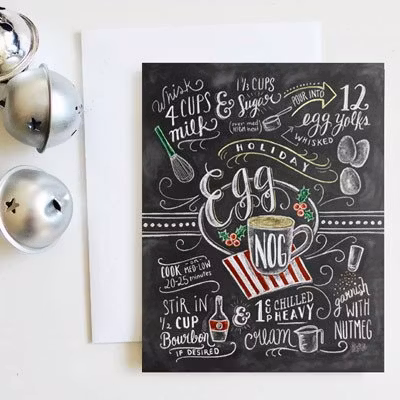 Whisk
4 CUPS
milk
&
1 1/3 CUPS
Sugar
(over med
heat)
POUR INTO
12
egg yolks
WHISKED
HOLIDAY
Egg
NOG
COOK on MED-LOW
20-25 minutes
STIR IN
1/2 CUP
Bourbon
IF DESIRED
&
1 CUP CHILLED
HEAVY
cream
garnish
WITH
NUTMEG